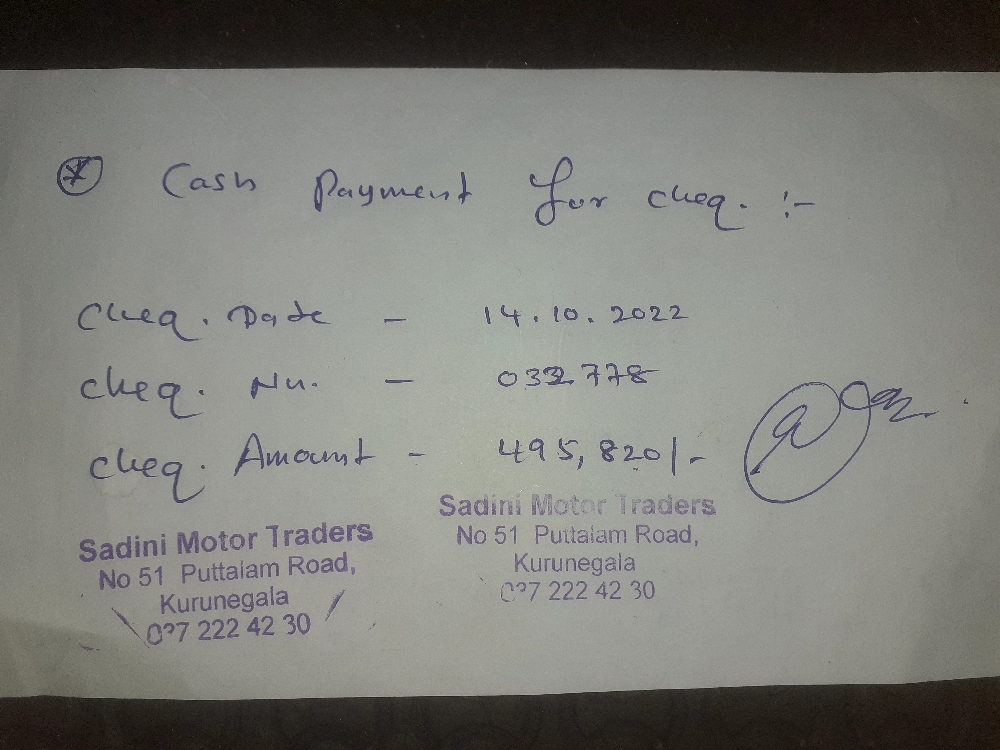 Cash Payment for cheq. :-
Cheq. Date - 14.10.2022
cheq. No. - 032778
cheq. Amount - 495,820/-
Sadini Motor Traders
No 51 Puttalam Road,
Kurunegala
037 222 42 30
Sadini Motor Traders
No 51 Puttalam Road,
Kurunegala
037 222 42 30